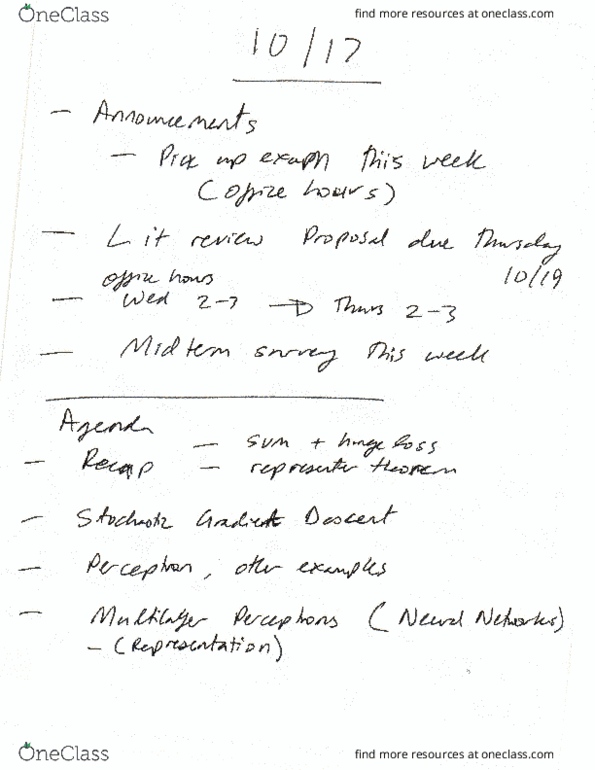 OneClass
find more resources at oneclass.com
10/17
— Announcements
— Pick up exam this week
(office hours)
— Lit review Proposal due Thursday
10/19
office hours
— Wed 2-3 → Thurs 2-3
— Midterm survey this week
Agenda
— svm + hinge loss
— Recap — representer theorem
— Stochastic Gradient Descent
— Perceptron, other examples
— Multilayer Perceptrons (Neural Networks)
— (Representation)
OneClass
find more resources at oneclass.com